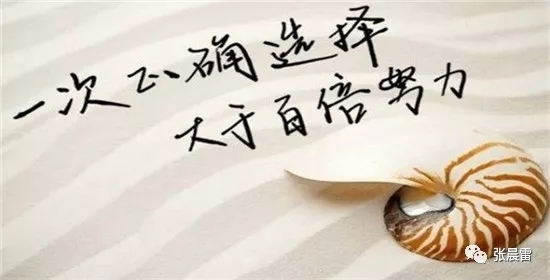 一次正确选择
大于百倍努力
张晨雷